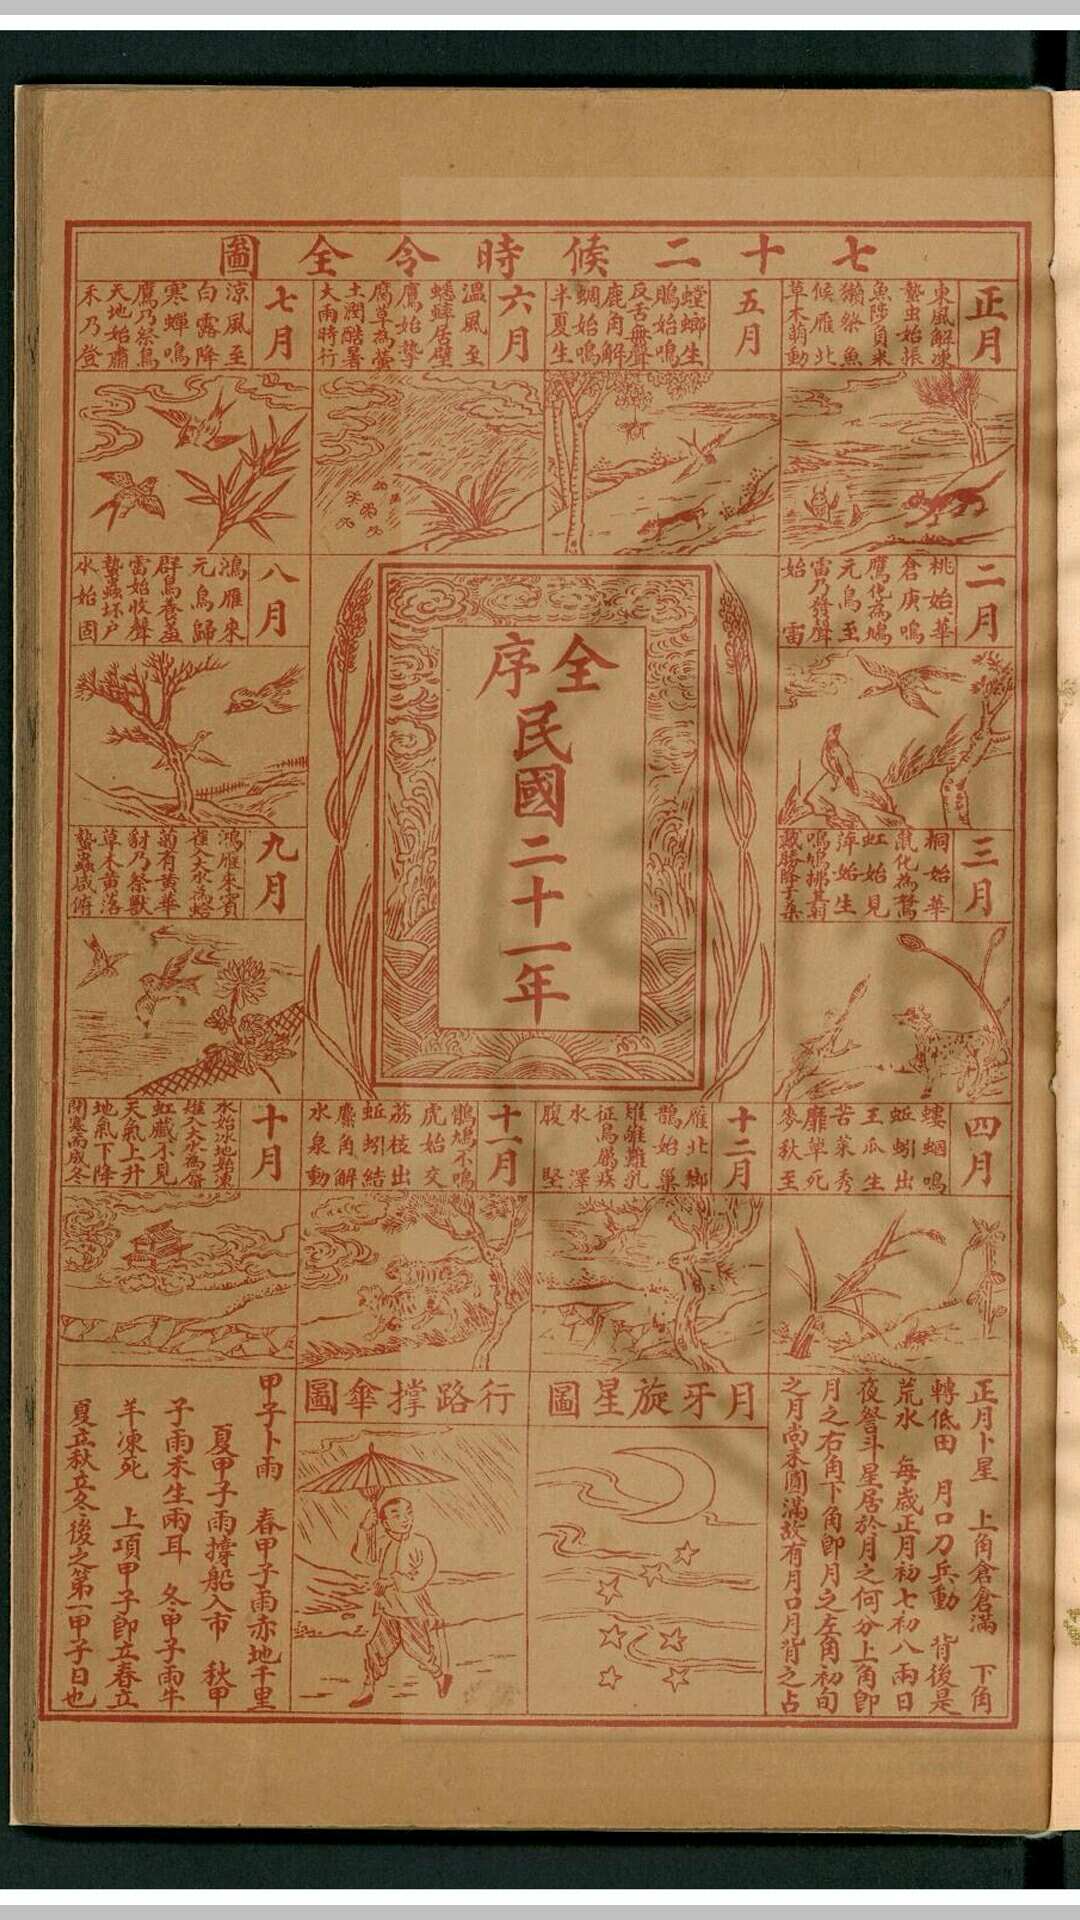 七十二候時令全圖
正月
東風解凍
蟄虫始振
魚陟負冰
獺祭魚
候雁北
草木萌動
五月
螳螂生
鵙始鳴
反舌無聲
鹿角解
蜩始鳴
半夏生
六月
溫風至
蟋蟀居壁
鷹始摯
腐草為螢
土潤酷暑
大雨時行
七月
涼風至
白露降
寒蟬鳴
鷹乃祭鳥
天地始肅
禾乃登
二月
桃始華
倉庚鳴
鷹化為鳩
元鳥至
雷乃發聲
始雷
全序
民國二十一年
八月
鴻雁來
元鳥歸
群鳥養羞
雷始收聲
蟄蟲坏戶
水始固
三月
桐始華
鼠化為鴽
虹始見
萍始生
鳴鳩拂其羽
戴勝降于桑
九月
鴻雁來賓
雀入大水為蛤
菊有黃華
豺乃祭獸
草木黃落
蟄蟲咸俯
四月
螻蟈鳴
蚯蚓出
王瓜生
苦菜秀
靡草死
麥秋至
十二月
雁北鄉
鵲始巢
雉雊雞乳
征鳥厲疾
水澤
腹堅
十一月
鶡鴠不鳴
虎始交
荔枝出
蚯蚓結
麋角解
水泉動
十月
水始冰地始凍
雉入大水為蜃
虹藏不見
天氣上升
地氣下降
閉塞而成冬
正月卜星 上角倉倉滿 下角
轉低田 月口刀兵動 背後是
荒水 每歲正月初七初八兩日
夜詧斗星居於月之何分上角即
月之右角下角即月之左角初旬
之月尚未圓滿故有月口月背之占
月牙旋星圖
行路撐傘圖
甲子卜雨 春甲子雨赤地千里
夏甲子雨撐船入市 秋甲
子雨禾生兩耳 冬甲子雨牛
羊凍死 上項甲子即立春立
夏立秋立冬後之第一甲子日也